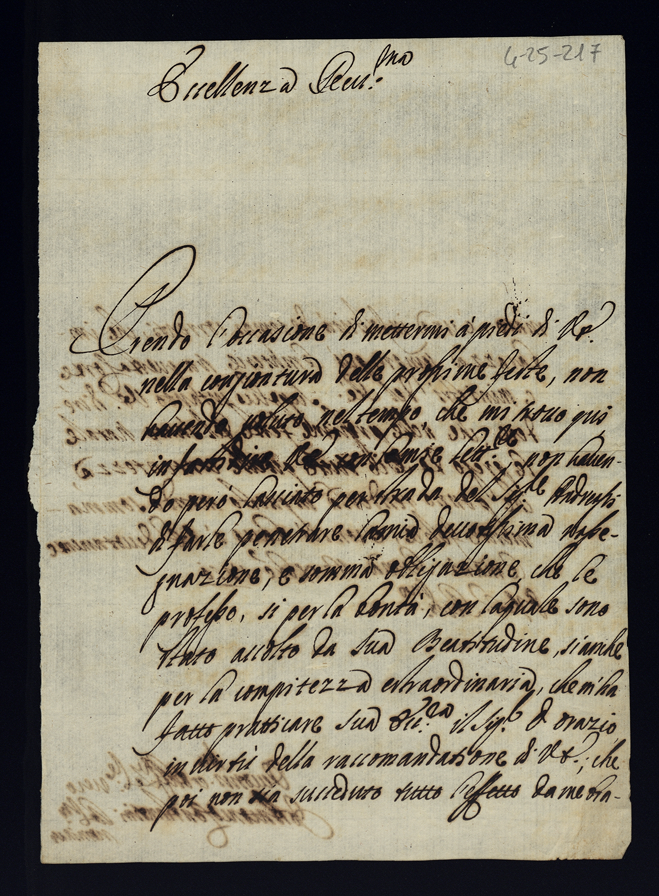 4-25-217
Eccellenza Rev.ma
Prendo l'occasione di mettermi à piedi di V.E.
nella conjontura delle prossime feste, non
havendo voluto nel tempo che mi trovo qui
infastidire V.E. con lett.re, non haven-
do però lasciato per strada del Sig.re
di farle penetrare la mia devotissima asse-
gnazione, e somma obligazione che le
professo, si per la bontà, con la quale sono
stato accolto da Sua Beatitudine, si anche
per la compitezza extraordinaria, che mi ha
fatto pratticare Sua Ecc.za il Sig.r D. Orazio
in virtù della raccomandatione di V.E.; che
poi non sia succeduto tutto l'effetto da me bra-